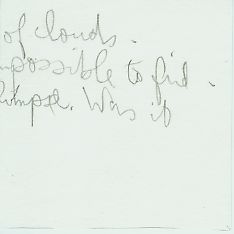 of clouds.
mpossible to find.
limpse. Was it